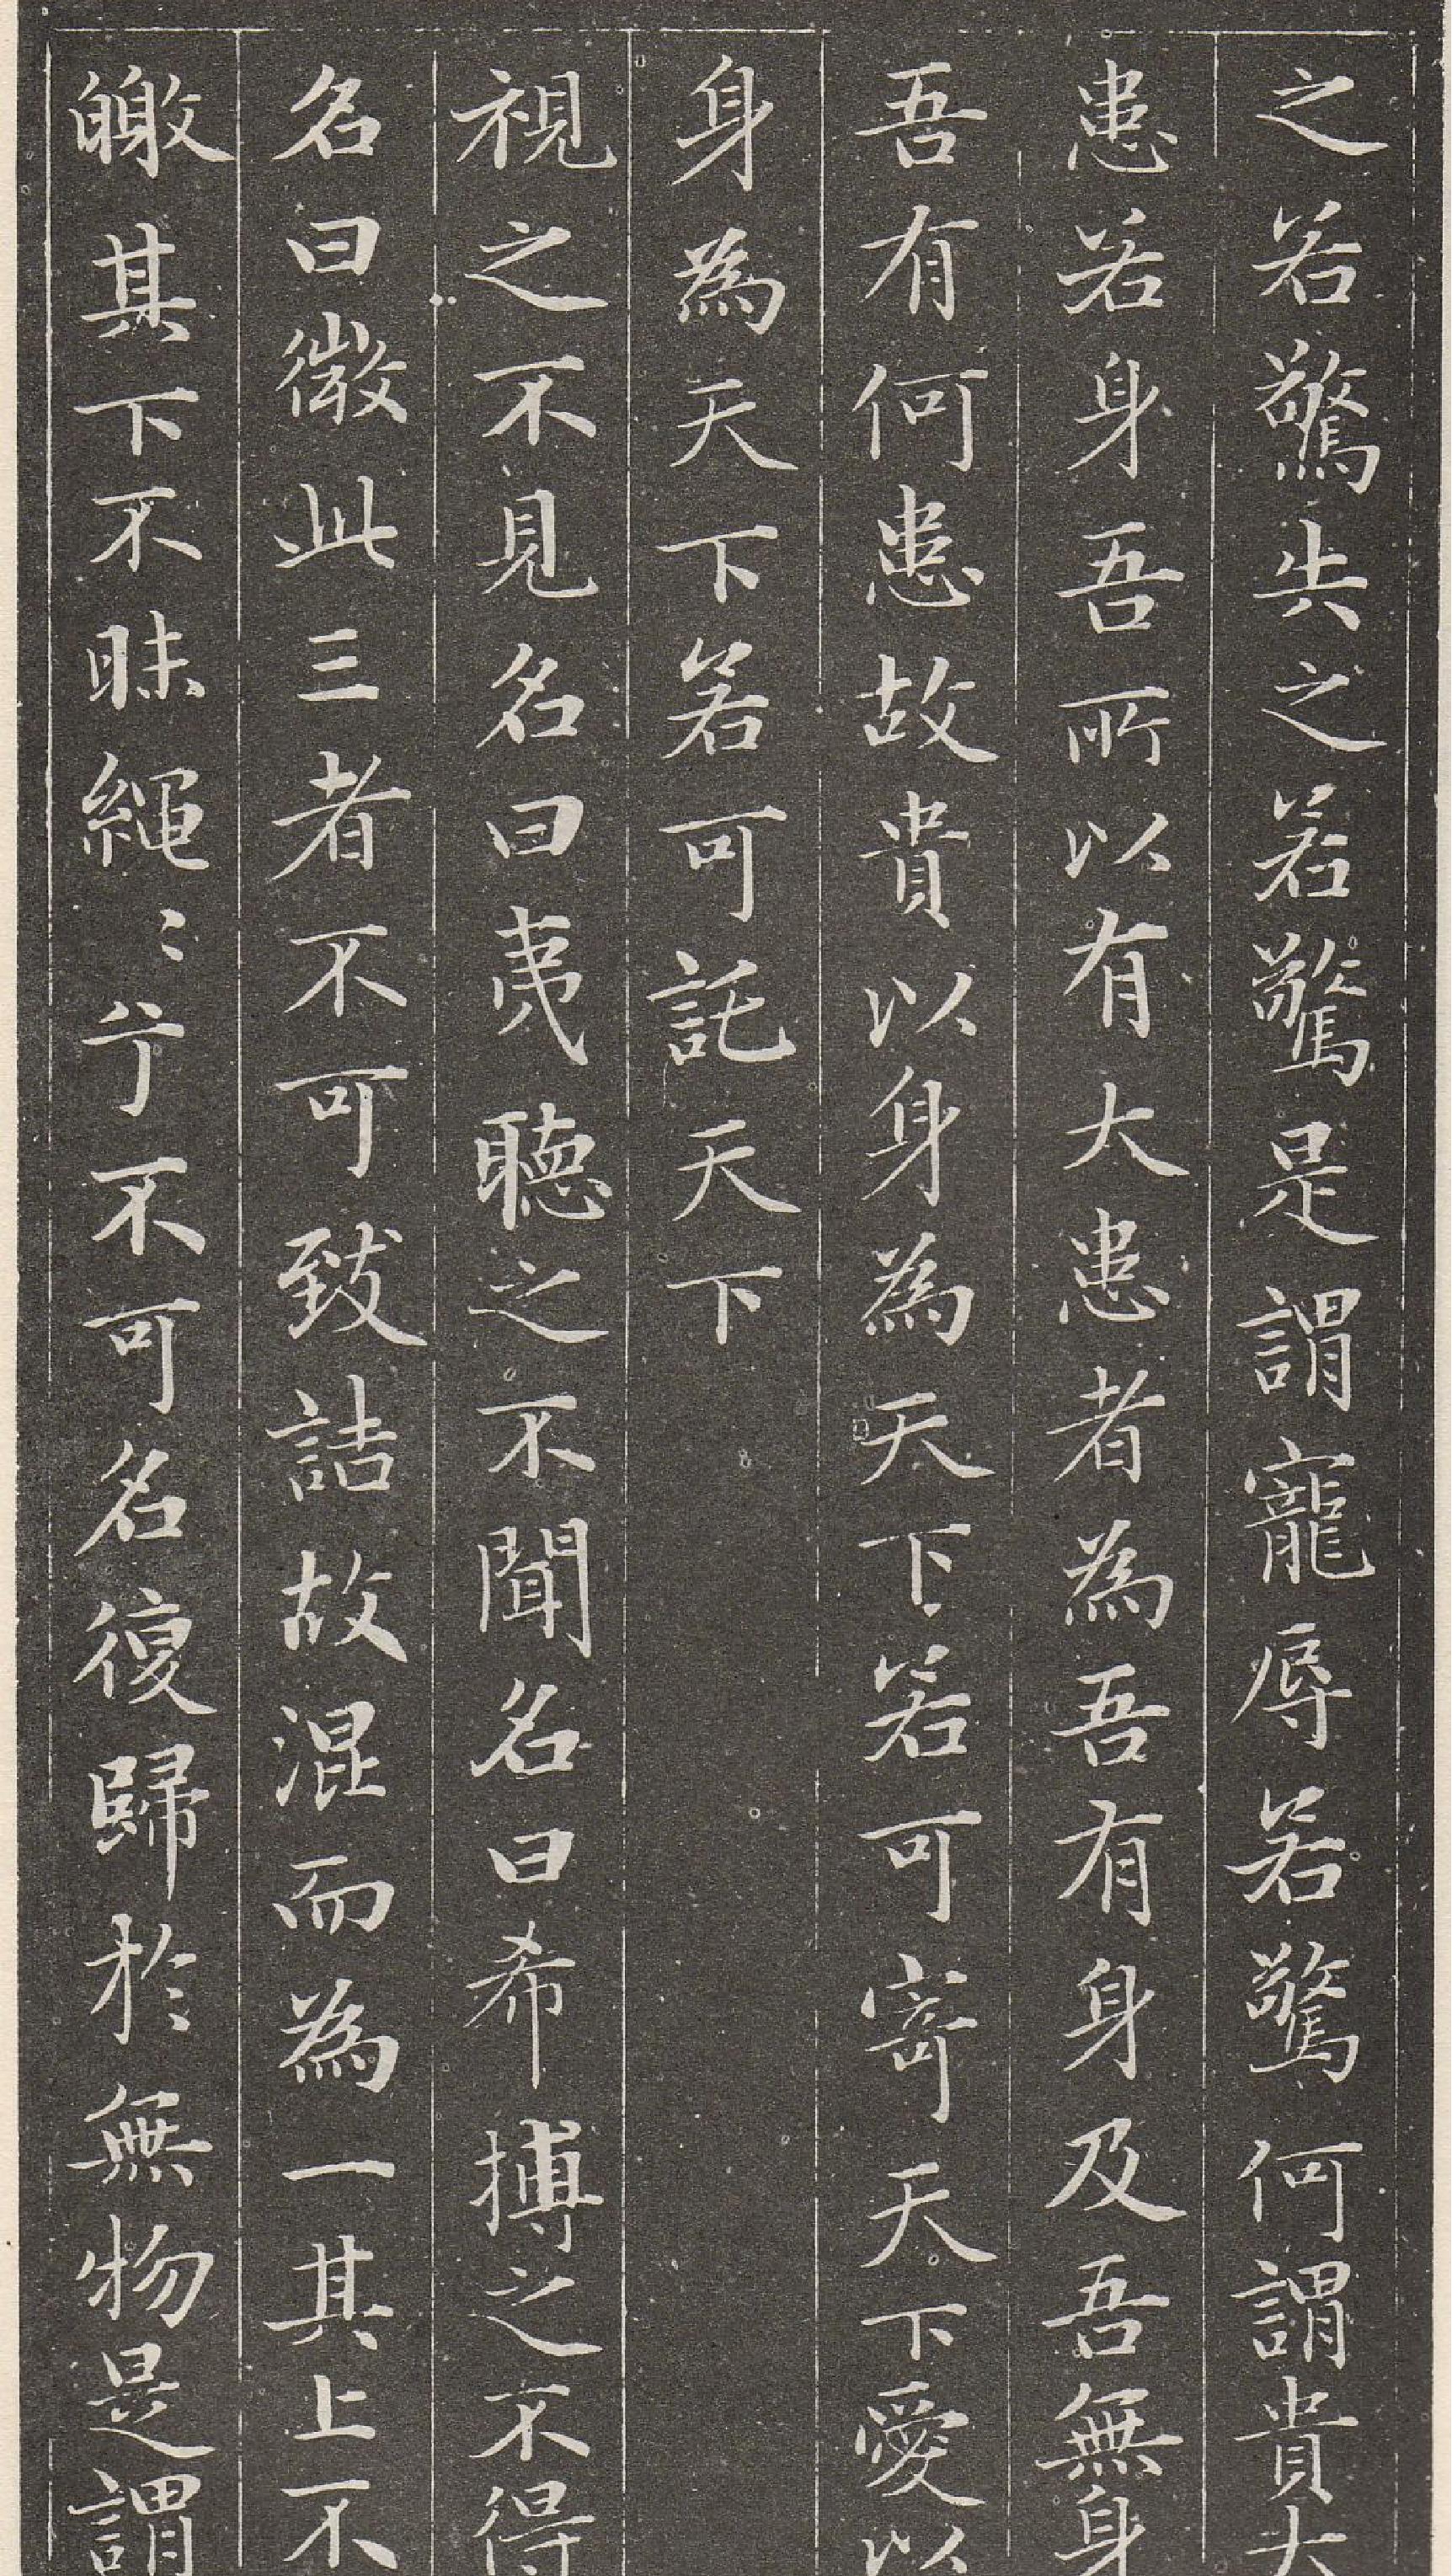 之若驚失之若驚是謂寵辱若驚何謂貴大
患若身吾所以有大患者為吾有身及吾無身
吾有何患故貴以身為天下若可寄天下愛以
身為天下若可託天下
視之不見名曰夷聽之不聞名曰希搏之不得
名曰微此三者不可致詰故混而為一其上不
皦其下不昧繩〻兮不可名復歸於無物是謂